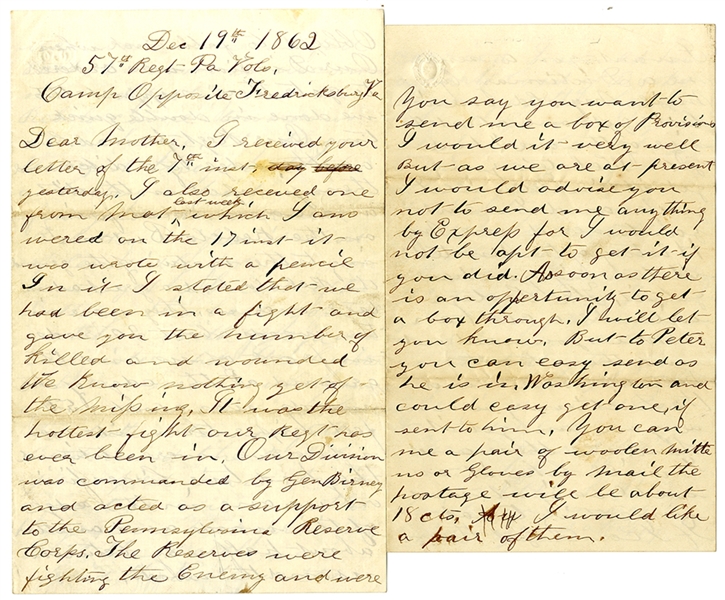 Dec 19th 1862
57th Regt Pa Vols.
Camp Opposite Fredricksburg Va
Dear Mother, I received your
letter of the 7th inst, day before
yesterday. I also received one
from Mat, last week which I ans
wered on the 17 inst it
was wrote with a pencil
In it I stated that we
had been in a fight and
gave you the number of
killed and wounded
We know nothing yet of
the missing. It was the
hottest fight our Regt has
ever been in. Our Division
was commanded by Gen Birney
and acted as a support
to the Pennsylvania Reserve
Corps. The Reserves were
fighting the Enemy and were
You say you want to
send me a box of Provisions
I would it very well
But as we are at present
I would advise you
not to send me anything
by Express for I would
not be apt to get it if
you did. As soon as there
is an oppertunity to get
a box through. I will let
you know. But to Peter
you can easy send as
he is in Washington and
could easy get one, if
sent to him. You can
me a pair of woolen mitte
ns or Gloves by mail the
postage will be about
18 cts. I would like
a pair of them.